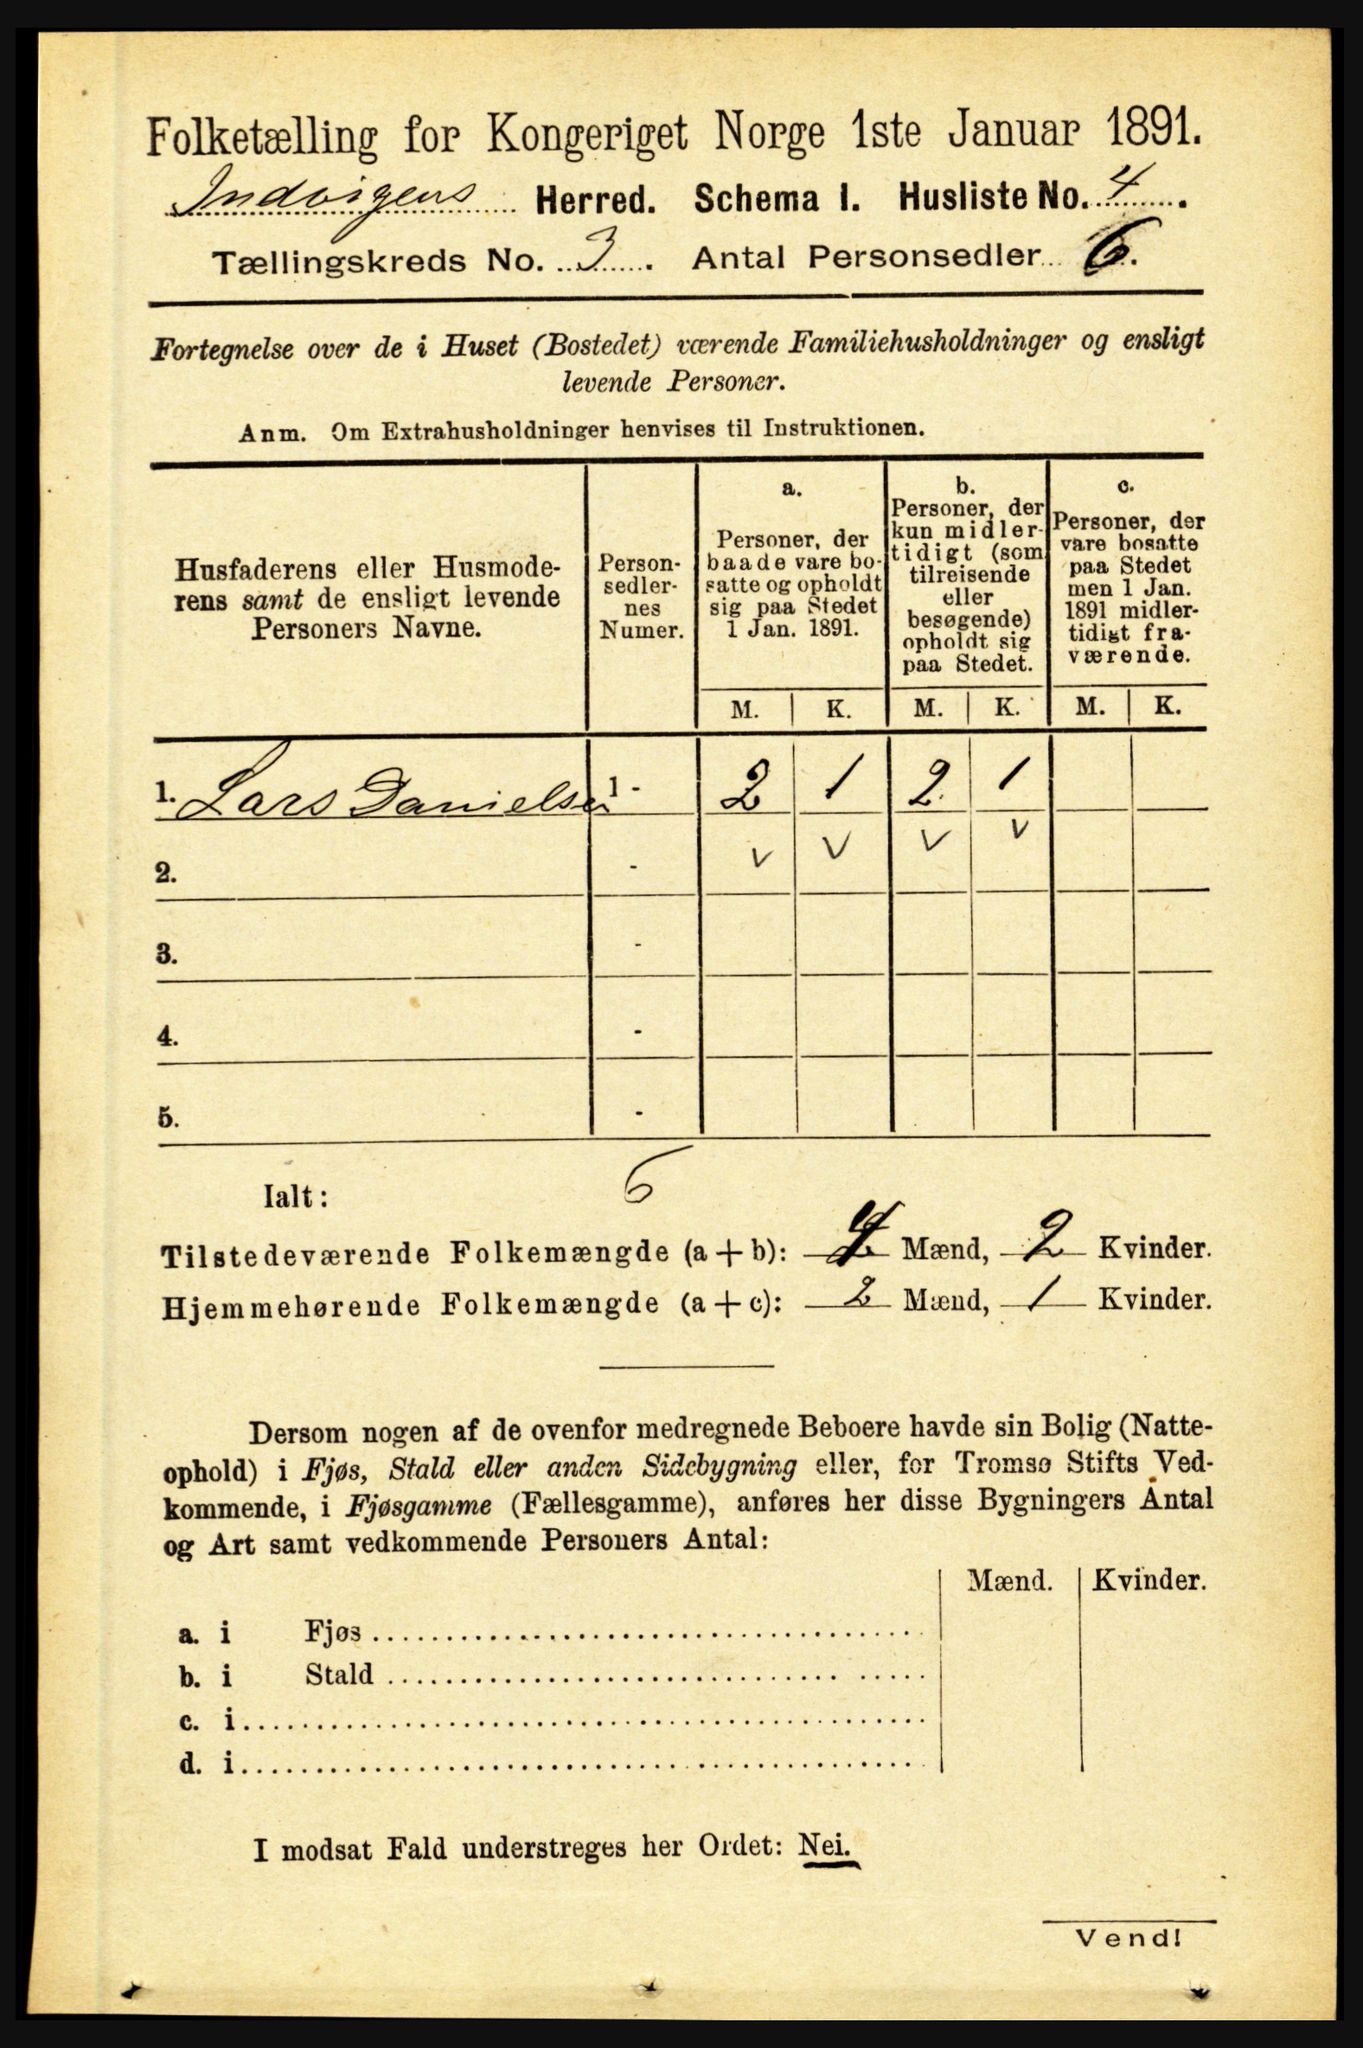 Folketælling for Kongeriget Norge 1ste Januar 1891.
Indvigens Herred. Schema I. Husliste No. 4.
Tællingskreds No. 3. Antal Personsedler 6.
Fortegnelse over de i Huset (Bostedet) værende Familiehusholdninger og ensligt
levende Personer.
Anm. Om Extrahusholdninger henvises til Instruktionen.
Husfaderens eller Husmode-
rens samt de ensligt levende
Personers Navne.
Person-
sedler-
nes
Numer.
a.
Personer, der
baade vare bo-
satte og opholdt
sig paa Stedet
1 Jan. 1891.
b.
Personer, der
kun midler-
tidigt (som
tilreisende
eller
besøgende)
opholdt sig
paa Stedet.
c.
Personer, der
vare bosatte
paa Stedet
men 1 Jan.
1891 midler-
tidigt fra-
værende.
M. K. M. K. M. K.
1. Lars Danielsen 1 - 2 1 2 1
2. - v v v v
3. -
4. -
5. -
Ialt: 6
Tilstedeværende Folkemængde (a + b): 4 Mænd, 2 Kvinder.
Hjemmehørende Folkemængde (a + c): 2 Mænd, 1 Kvinder.
Dersom nogen af de ovenfor medregnede Beboere havde sin Bolig (Natte-
ophold) i Fjøs, Stald eller anden Sidebygning eller, for Tromsø Stifts Ved-
kommende, i Fjøsgamme (Fællesgamme), anføres her disse Bygningers Antal
og Art samt vedkommende Personers Antal:
Mænd. Kvinder.
a. i Fjøs
b. i Stald
c. i
d. i
I modsat Fald understreges her Ordet: Nei.
Vend!